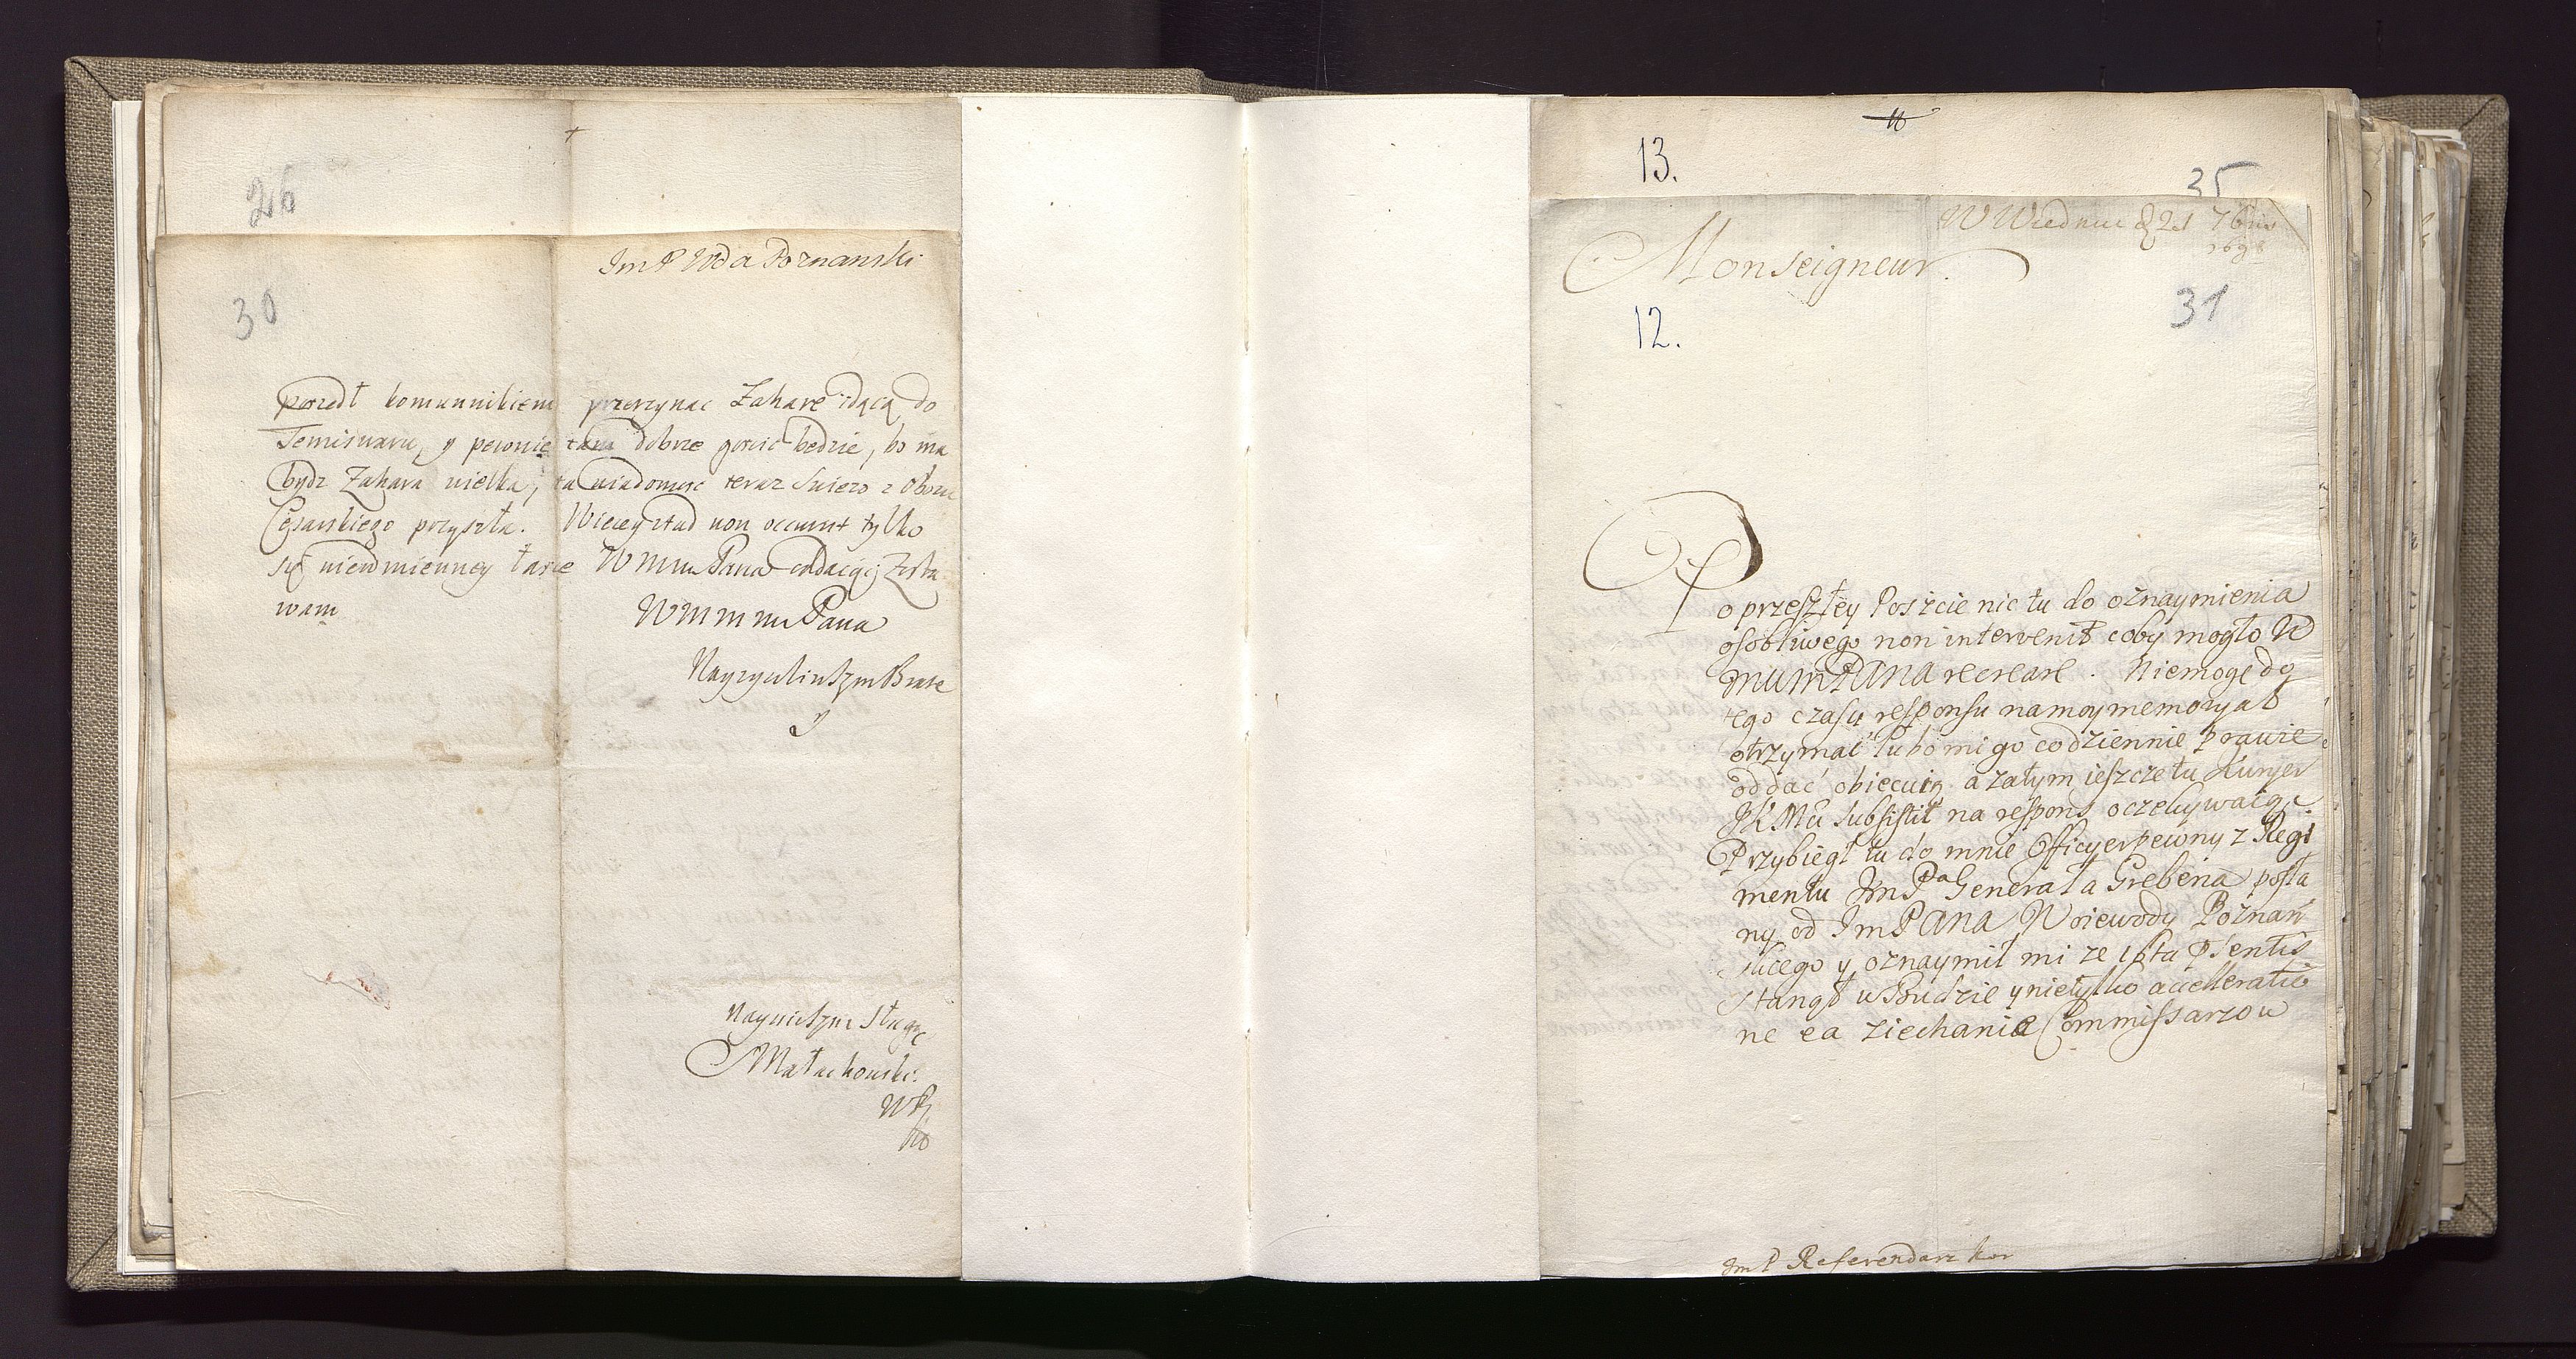 26
Im P Wda Poznanski
30
poszedł komunnikiem przerzynac Zaharę idącą do
Temiswaru, y pewnie tam dobrze goscic będzie, bo ma
bydz Zahara wielka, ta wiadomosc teraz swiezo z Obozu
Cesarskiego przyszła. Wiecey ztad non occurrit tylko
się nieodmienney łasce WMMPana oddaiąc Zosta
wam
WMMMPana
Nayzyczliwszym Bratē
y
Nayniszym Sługą
Małachowski
WP
13.
35
W Wiedniu d 21 7bris
1698
Monseigneur.
12.
31
Po przeszłey Poszcie nic tu do oznaymienia
osobliwego non intervenit coby mogło W
MMMPANA recreare. Niemogę do
tego czasu responsu na moy memoryał
otrzymać lubo mi go codziennie prawie
oddać obiecuią a zatym ieszcze tu Kuryer
JKMci subsistit na respons oczekywaiąc.
Przybiegł tu do mnie Officyer pewny z Regi
mentu Jm Pa Generała Grebena posła
ny od Jm PANA Woiewody Poznań
skiego y oznaymił mi ze 16ta Psentis
stanął w Budzie y nie tylko accelleratio
ne ea ziechania Commissarzow
Jm P Referendarz kor